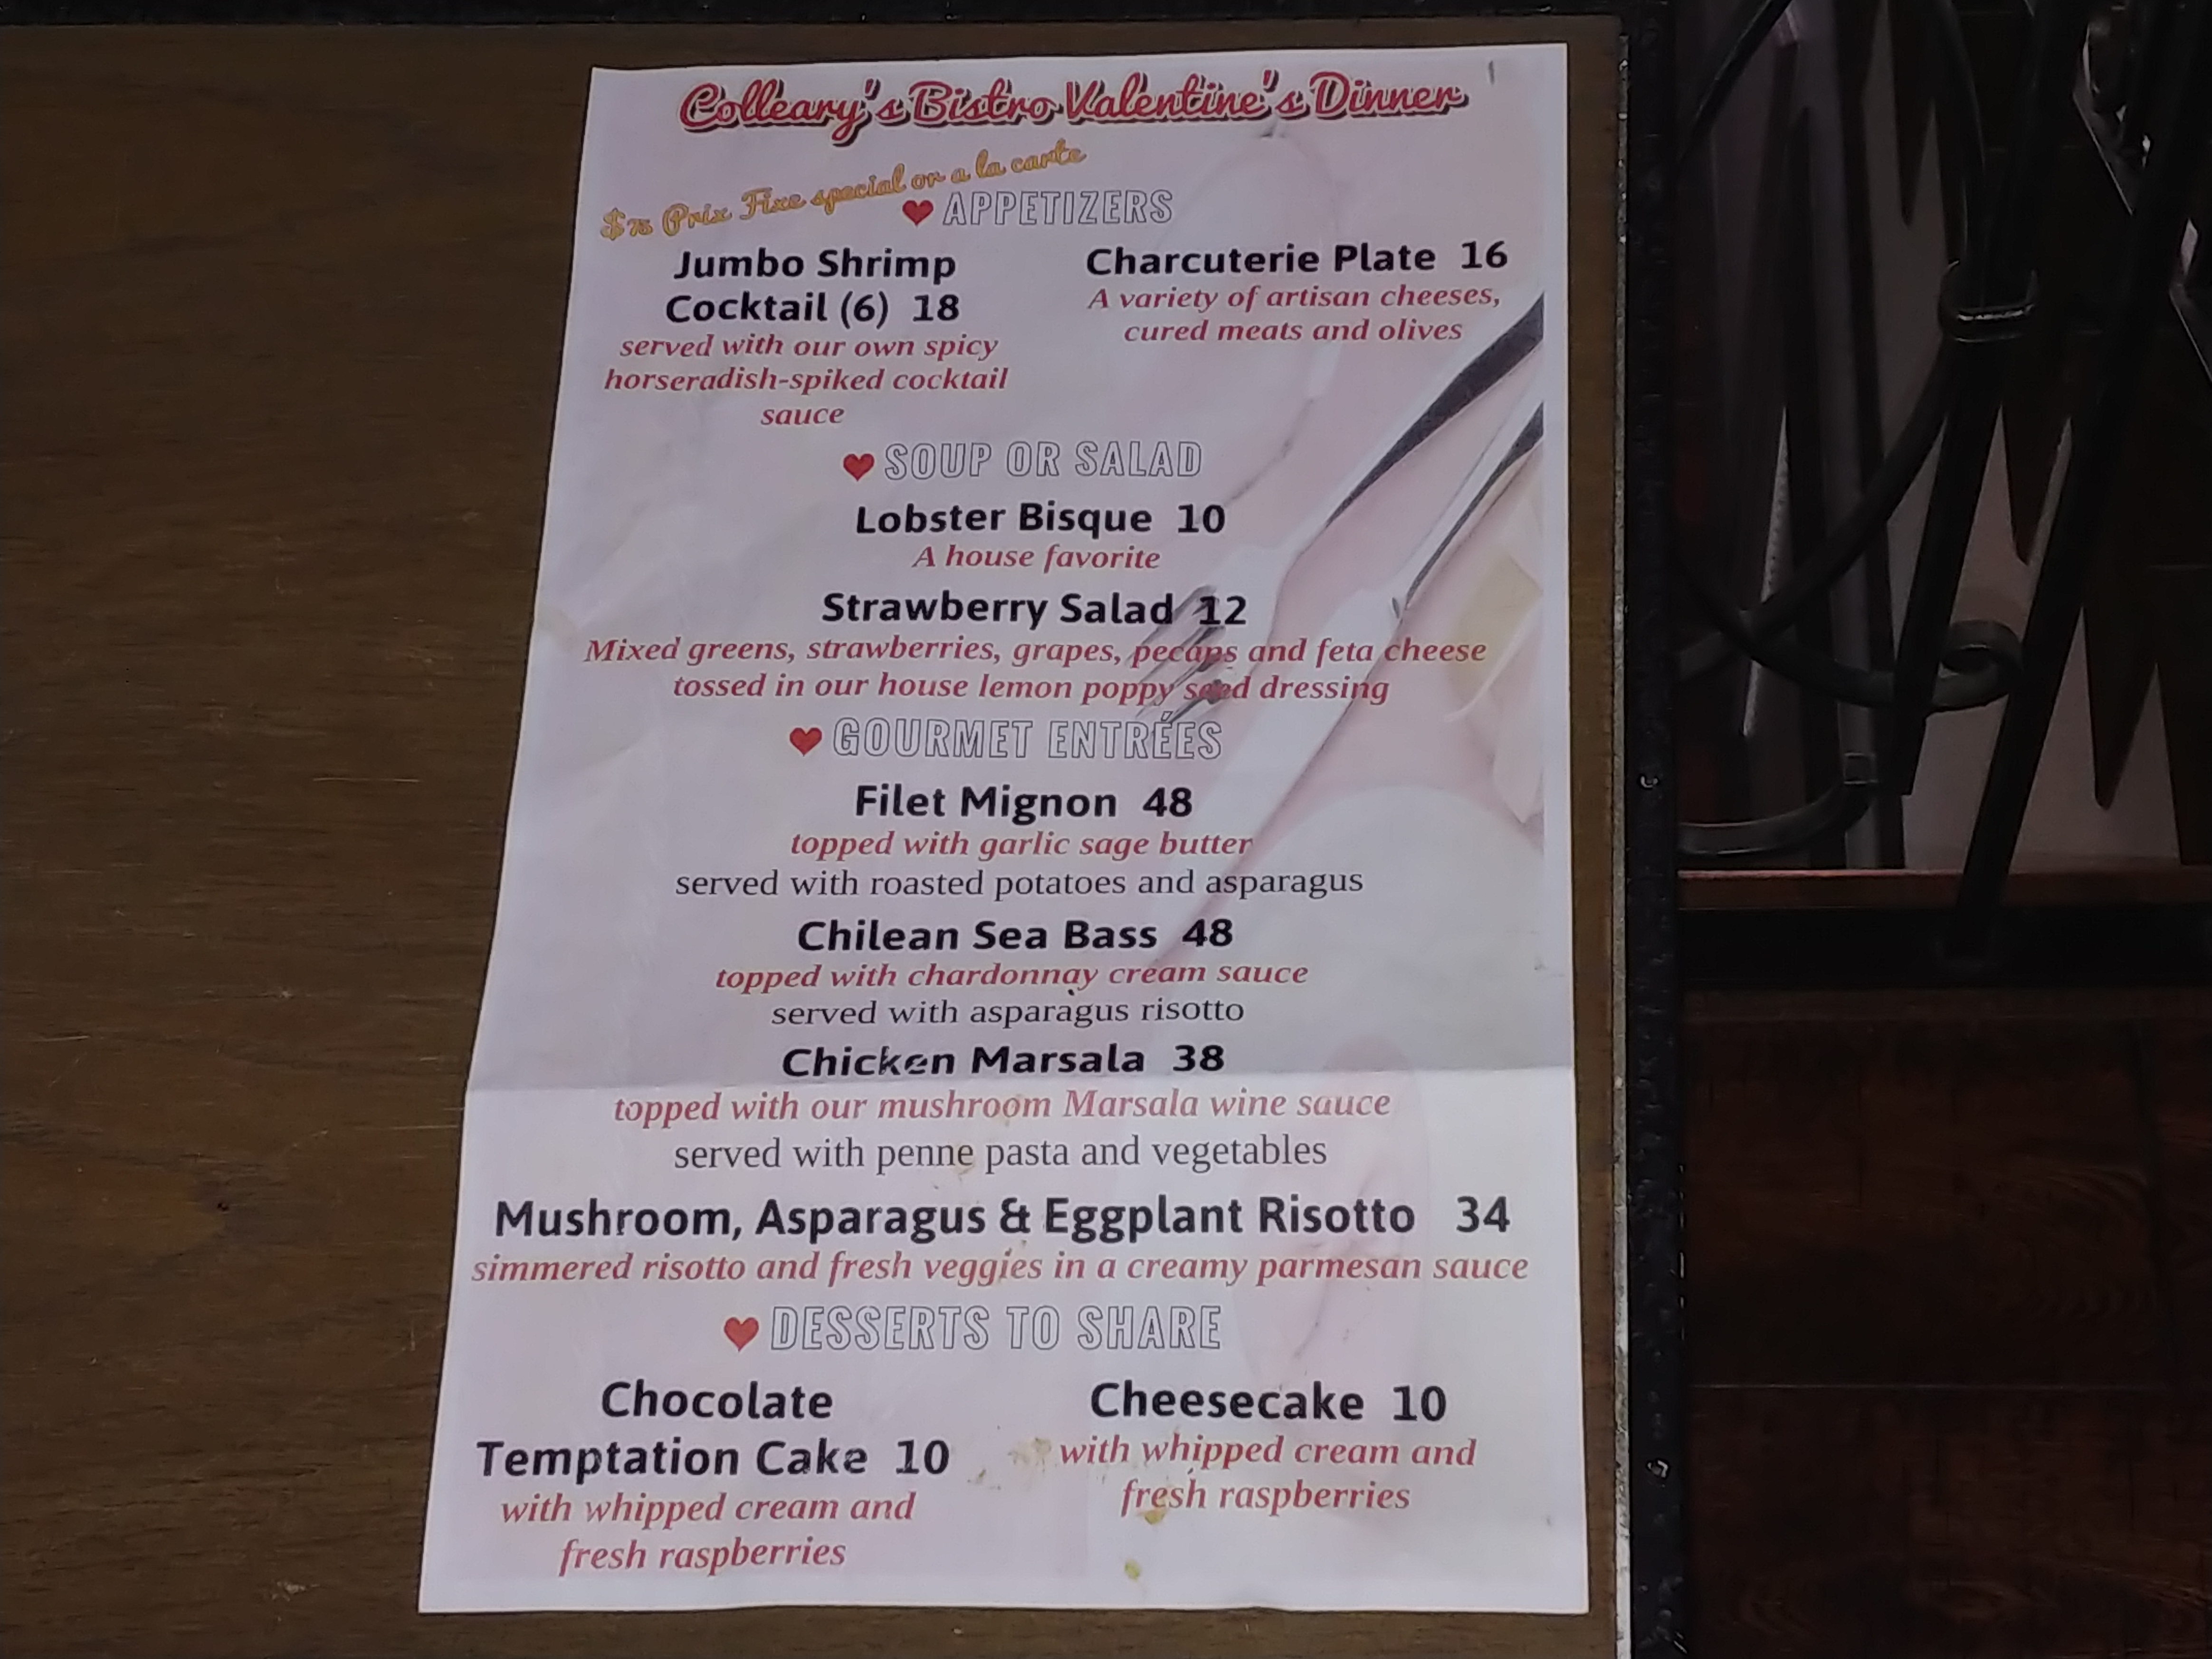 Colleary's Bistro Valentine's Dinner
$75 Prix Fixe special or a la carte
APPETIZERS
Jumbo Shrimp
Cocktail (6) 18
served with our own spicy
horseradish-spiked cocktail
sauce
Charcuterie Plate 16
A variety of artisan cheeses,
cured meats and olives
SOUP OR SALAD
Lobster Bisque 10
A house favorite
Strawberry Salad 12
Mixed greens, strawberries, grapes, pecans and feta cheese
tossed in our house lemon poppy seed dressing
GOURMET ENTRÉES
Filet Mignon 48
topped with garlic sage butter
served with roasted potatoes and asparagus
Chilean Sea Bass 48
topped with chardonnay cream sauce
served with asparagus risotto
Chicken Marsala 38
topped with our mushroom Marsala wine sauce
served with penne pasta and vegetables
Mushroom, Asparagus & Eggplant Risotto 34
simmered risotto and fresh veggies in a creamy parmesan sauce
DESSERTS TO SHARE
Chocolate
Temptation Cake 10
with whipped cream and
fresh raspberries
Cheesecake 10
with whipped cream and
fresh raspberries